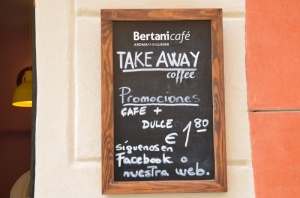 Bertanicafé
AROMA PARA LLEVAR
TAKE AWAY
coffee
Promociones
CAFE +
DULCE
€ 1'80
Síguenos en
Facebook o
nuestra web.